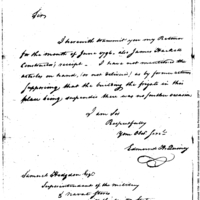 Sir,
I herewith transmit you my Return
for the month of June 1796, also James Hackett
(Constructor) receipt. I have not mentioned the
articles on hand, (or not returned) as by former return
supposing, that the building the frigate in this
place being suspended there was no further occasion.
I am Sir
Respectfully
Your Obt Serv
Samuel Hodgdon Esqr
Superintendant of the military
& Naval Stores